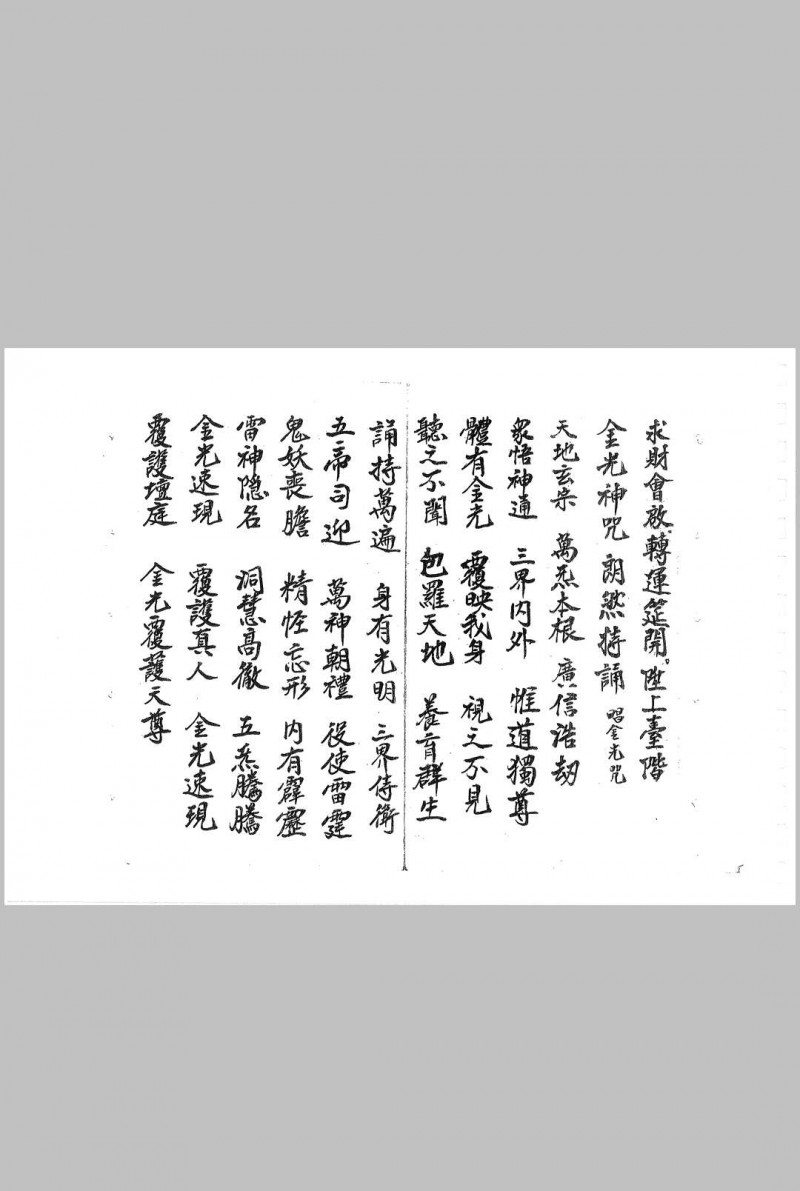 求財會啟轉運筵開。陞上臺階
金光神咒 朗然持誦 唱金光咒
天地玄宗 萬炁本根 廣信浩劫
眾悟神通 三界內外 惟道獨尊
體有金光 覆映我身 視之不見
聽之不聞 包羅天地 養育群生
誦持萬遍 身有光明 三界侍衛
五帝司迎 萬神朝禮 役使雷霆
鬼妖喪膽 精怪忘形 內有霹靂
雷神隐名 洞慧高徹 五炁騰騰
金光速現 覆護真人 金光速現
覆護壇庭 金光覆護天尊
5